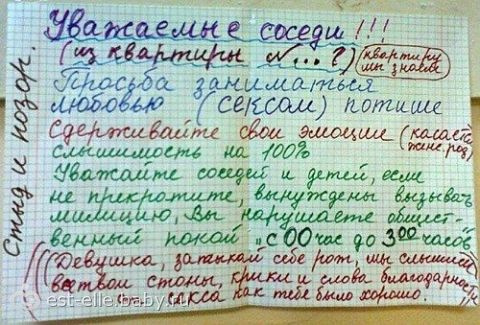 Уважаемые соседи !!!
(из квартиры №...?) (квартиру мы знаем)
Просьба заниматься
любовью (сексом) потише
Сдерживайте свои эмоции (касается женс. род)
слышимость на 100%
Уважайте соседей и детей, если
не прекратите, вынуждены вызывать
милицию, Вы нарушаете общест-
венный покой "с 00 час до 3 00 часов"
Девушка, затыкай себе рот, мы слышим
все твои стоны, крики и слова благодарности
секса как тебе было хорошо.
Стыд и позор.
est-elle.baby.ru